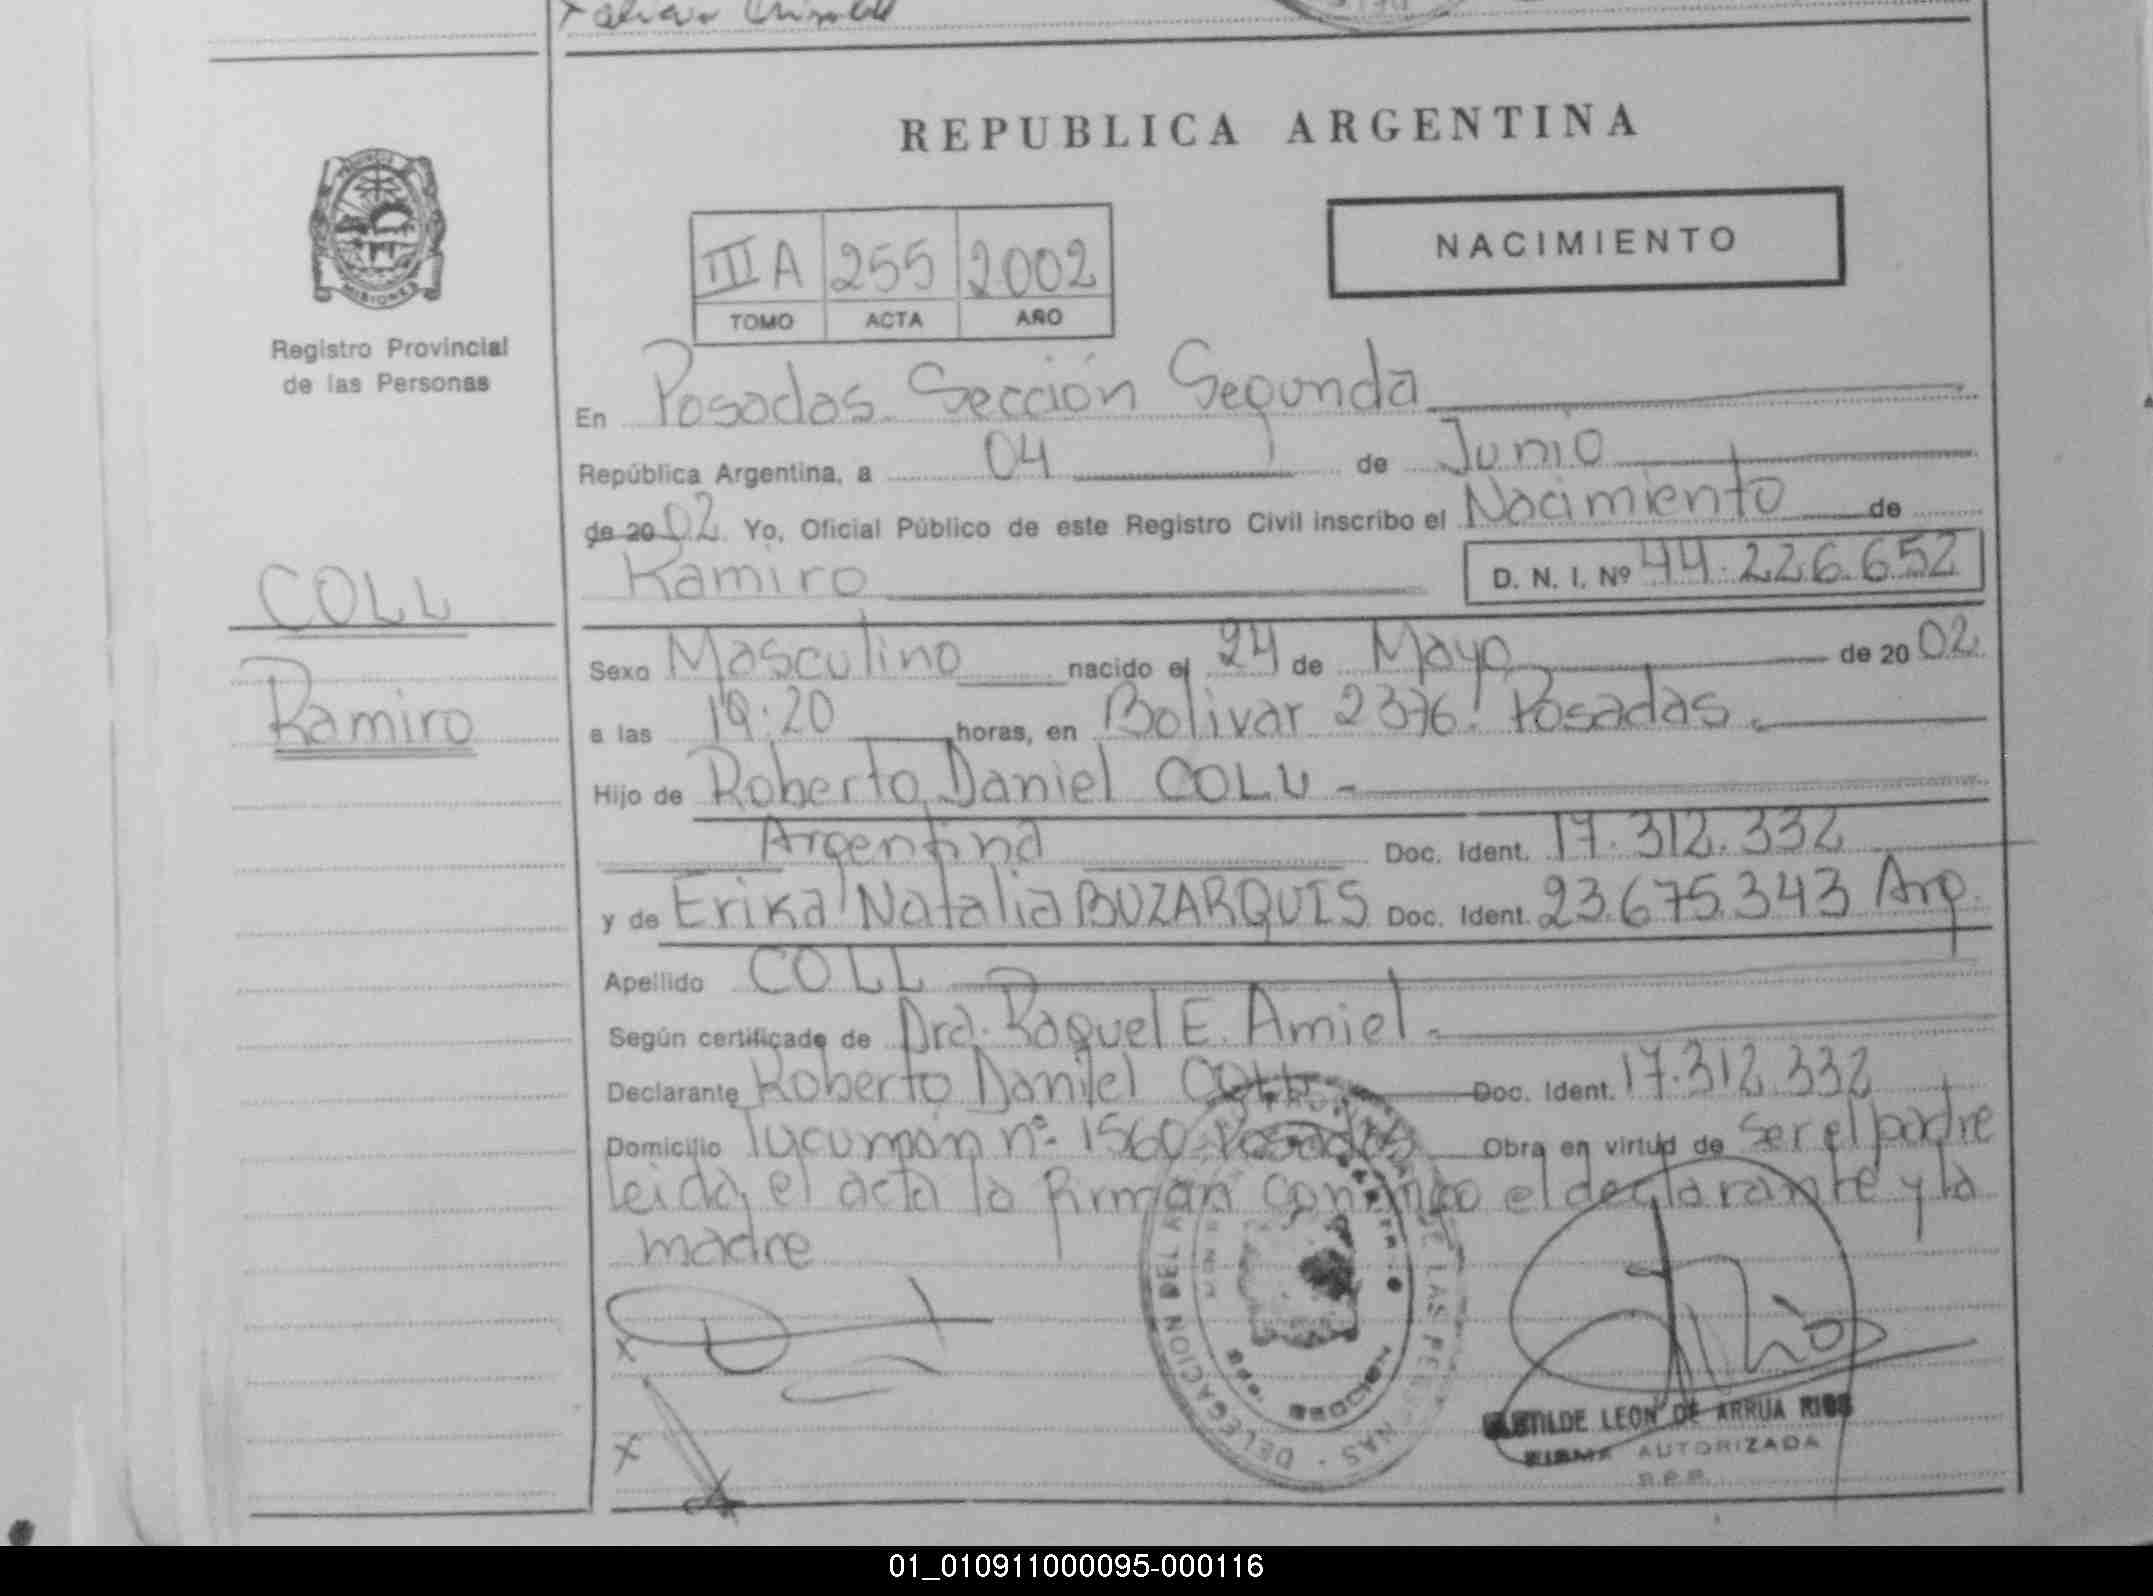 REPUBLICA ARGENTINA
NACIMIENTO
III A 255 2002
TOMO ACTA AÑO
MISIONES
Registro Provincial
de las Personas
COLL
Ramiro
En Posadas Sección Segunda
República Argentina, a 04 de Junio
de 2002 Yo, Oficial Público de este Registro Civil inscribo el Nacimiento de
Ramiro D. N. I. Nº 44.226.652
Sexo Masculino nacido el 24 de Mayo de 2002
a las 19:20 horas, en Bolivar 2376. Posadas.
Hijo de Roberto Daniel COLL -
Argentina Doc. Ident. 17.312.332
y de Erika Natalia BUZARQUIS Doc. Ident. 23.675.343 Arg.
Apellido COLL
Según certificado de Dra. Raquel E. Amiel.
Declarante Roberto Daniel COLL Doc. Ident. 17.312.332
Domicilio Tucumán nº 1560 Posadas Obra en virtud de Ser el padre
leida el acta la firman conmigo el declarante y la
madre
X
X
DELEGACION DE LAS PERSONAS
SECCION
LEON DE ARRUA RIOS
FIRMA AUTORIZADA
01_010911000095-000116